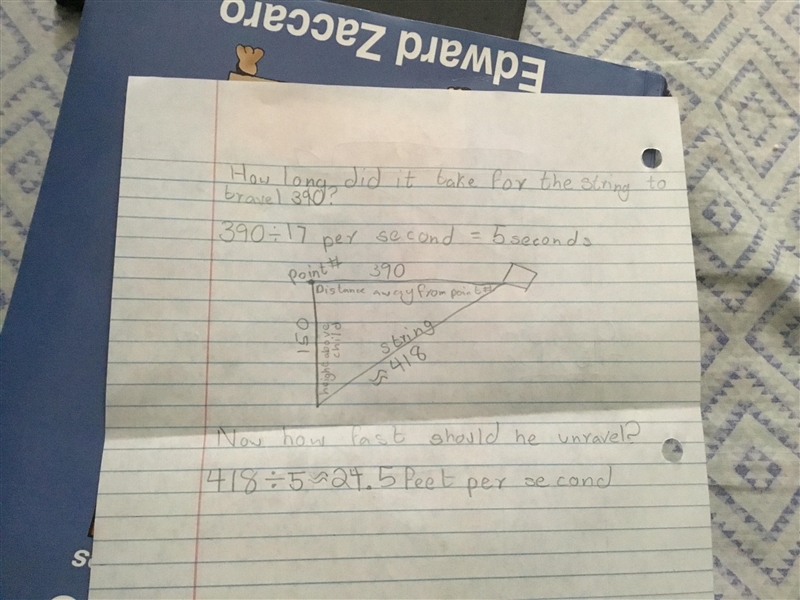 Edward Zaccaro
How long did it take for the string to
travel 390?
390÷17 per second = 5seconds
point#
390
Distance away from point#
150
height above
child
string
≈418
Now how fast should he unravel?
418÷5≈24.5 feet per second